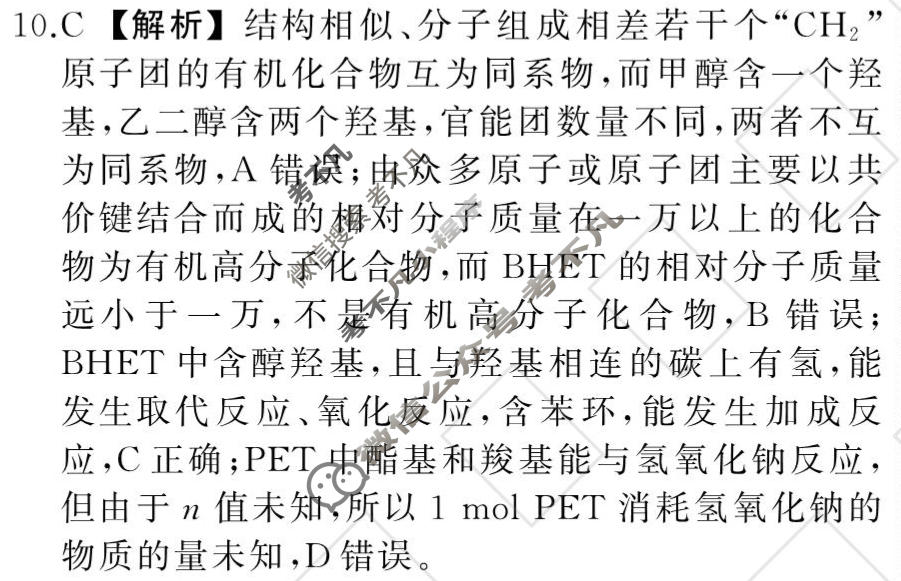 10.C【解析】结构相似、分子组成相差若干个“CH₂”
原子团的有机化合物互为同系物,而甲醇含一个羟
基,乙二醇含两个羟基,官能团数量不同,两者不互
为同系物,A 错误;由众多原子或原子团主要以共
价键结合而成的相对分子质量在一万以上的化合
物为有机高分子化合物,而 BHET 的相对分子质量
远小于一万,不是有机高分子化合物,B 错误;
BHET 中含醇羟基,且与羟基相连的碳上有氢,能
发生取代反应、氧化反应,含苯环,能发生加成反
应,C 正确;PET 中酯基和羧基能与氢氧化钠反应,
但由于 n 值未知,所以 1 mol PET 消耗氢氧化钠的
物质的量未知,D 错误。
考不凡
微信搜索 考不凡
考不凡小程序
微信公众号:考不凡